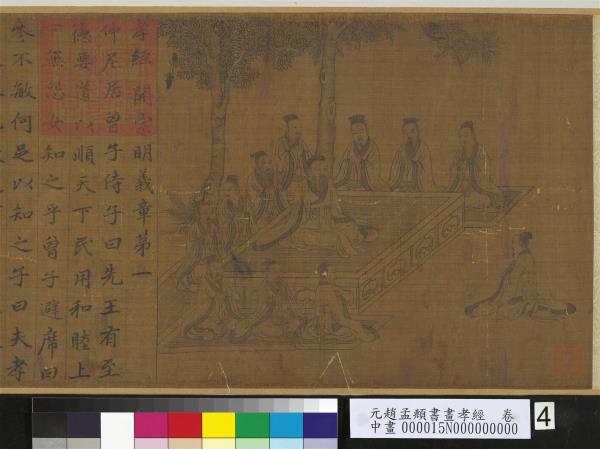 孝經 開宗明義章第一
仲尼居曾子侍子曰先王有至
德要道以順天下民用和睦上
下無怨女知之乎曾子避席曰
參不敏何足以知之子曰夫孝
元趙孟頫書畫孝經 卷
中畫 000015N000000000
4